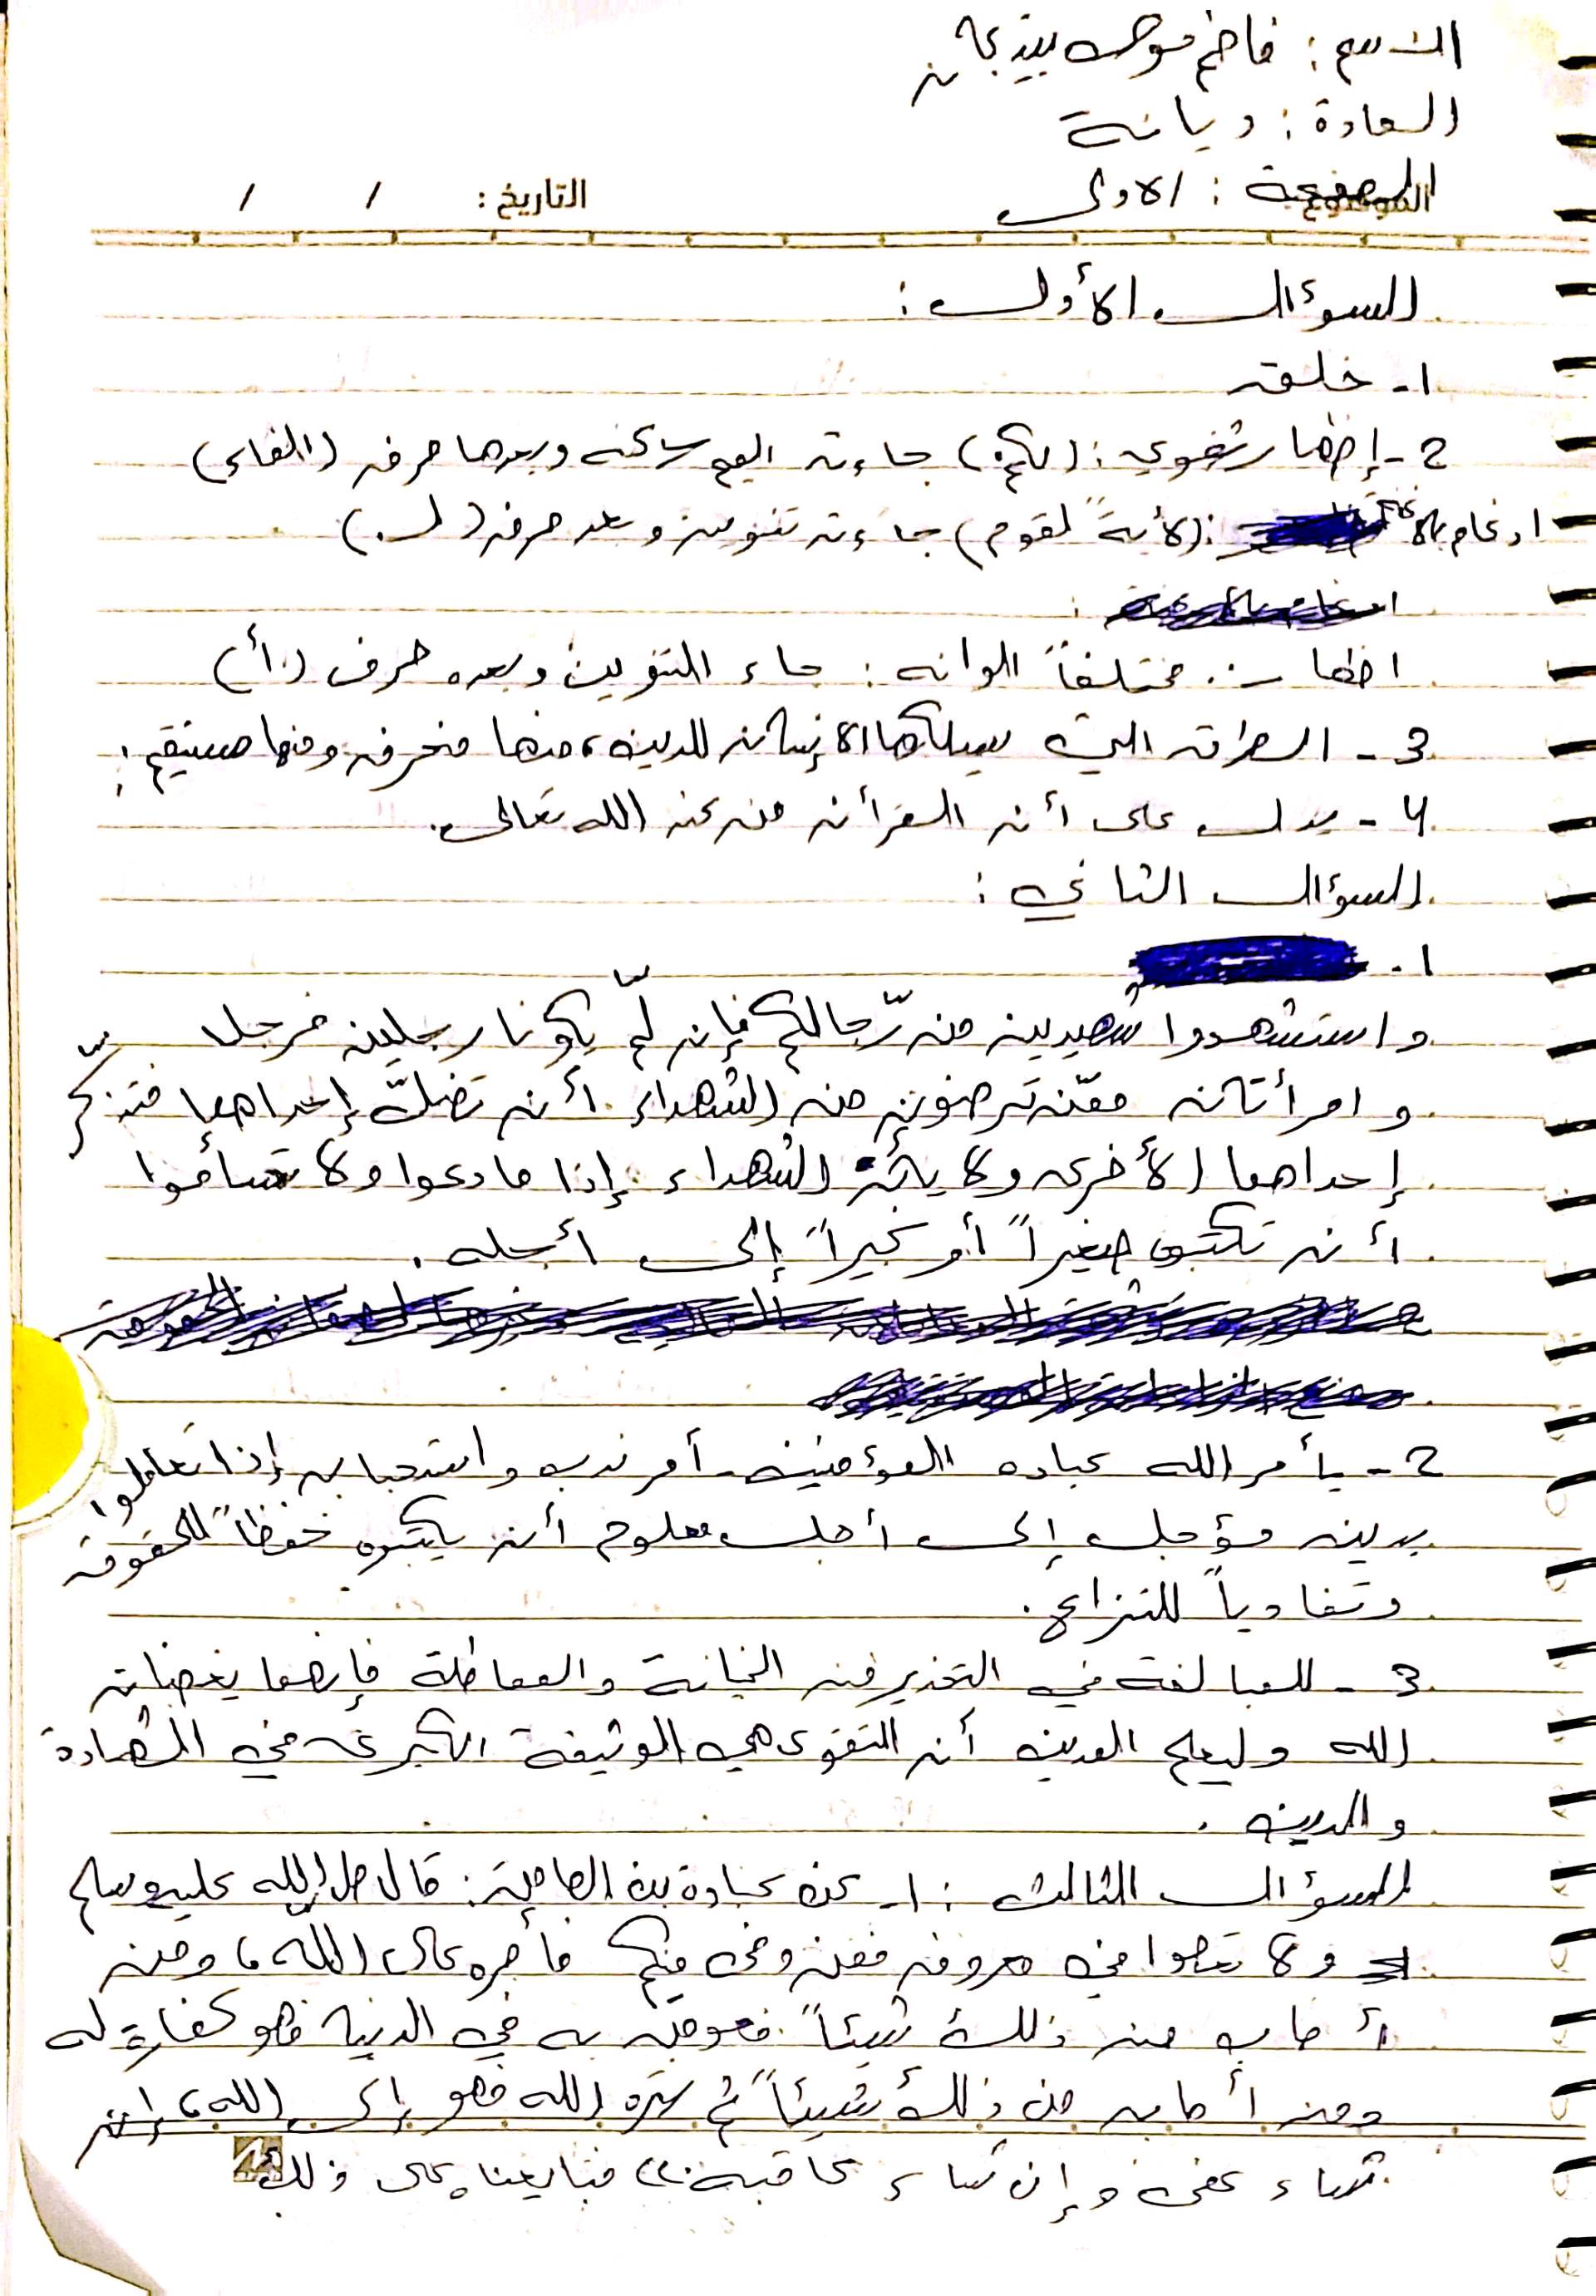 الاسم : فاضم موسى
المادة : ديانة
الصفحة : الاولى
التاريخ : / /
السؤال الأول :
1- خلقه
2- إظهار شفوي : (لكم) جاءت الميم ساكنه وبعدها حرف (الفاء)
ادغام بلا غنة : (لأيةً لقوم) جاءت تنوين وبعد حرف (ل)
اظهار : مختلفاً الوانه : جاء التنوين وبعده حرف (أ)
3- الطرق التي يسلكها الإنسان للدين، منها منحرف ومنها مستقيم.
4- يدل على أن القرأن من عند الله تعالى.
السؤال الثاني :
1-
واستشهدوا شهيدين من رّجالكم فإن لّم يكونا رجلين فرجل
وامرأتان ممّن ترضون من الشهداء أن تضلّ إحداهما فتذكّر
إحداهما الأخرى ولا يأب الشهداء إذا ما دعوا ولا تسأموا
أن تكتبوه صغيراً أو كبيراً إلى أجله .
2- يأمر الله عباده المؤمنين أمر ندب واستحباب إذا تعاملوا
بدين مؤجل إلى أجل معلوم أن يكتبوه حفظاً للحقوق
وتفادياً للنزاع.
3- للمبالغة في التحذير من الخيانة والمماطلة فإنهما يغضبان
الله وليعلم المدين أن التقوى هي الوثيقة الكبرى في الشهادة
والدين .
السؤال الثالث : 1- عن عبادة بن الصامت : قال صل الله عليه وسلم
ولا تعصوا في معروف فمن وفى منكم فأجره على الله، ومن
أصاب من ذلك شيئاً فعوقب به في الدنيا فهو كفارة له
ومن أصاب من ذلك شيئاً ثم ستره الله فهو إلى الله، إن
شاء عفى وإن شاء عاقبه.)) فبايعناه على ذلك